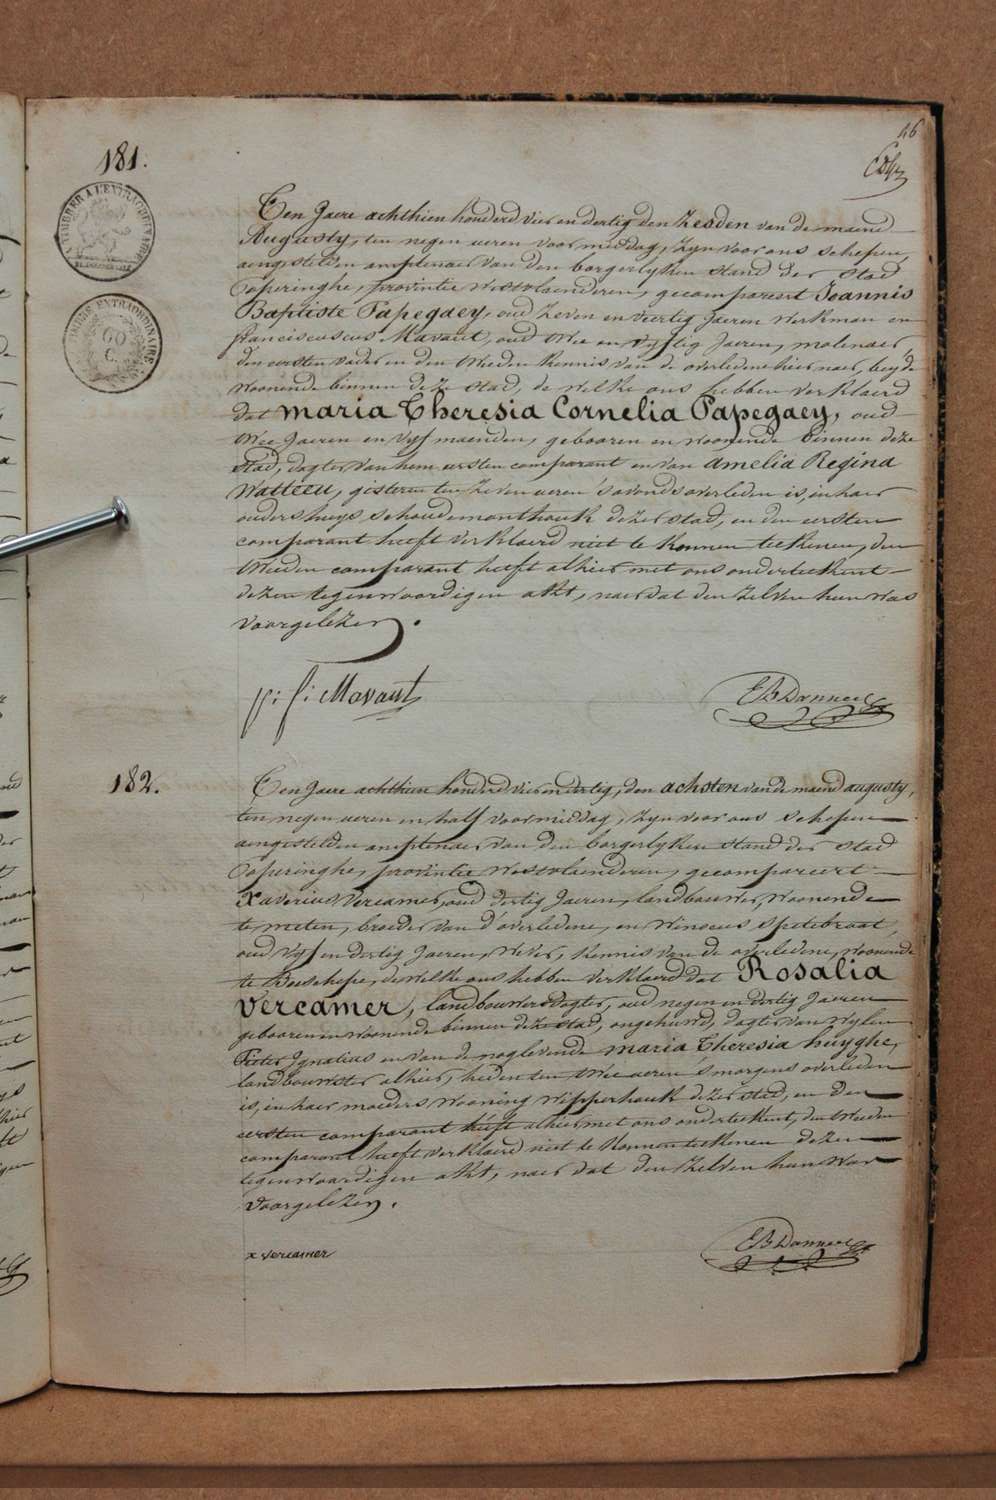 46
181.
TIMBRER A L'EXTRAORDINAIRE
TIMBRE EXTRAORDINAIRE
60
C.
Ten Jaere achthien honderd vier en dertig den Zesden van de maend
Augusty, ten negen ueren voormiddag, zyn voor ons schepen,
aengestelden amptenaer van den borgerlyken stand der stad
Poperinghe, provintie Westvlaenderen, gecompareert Joannis
Baptiste Papegaey, oud zeven en veertig Jaeren werkman en
Franciscus Mavaut, oud twee en vyftig Jaeren, molenaer,
den eersten vader en den tweeden kennis van de overledene hier naer, beyde
woonende binnen deze stad, de welke ons hebben verklaerd
dat maria Theresia Cornelia Papegaey, oud
twee Jaeren en vyf maenden, gebooren en woonende binnen deze
stad, dogter van hem eersten comparant en van amelia Regina
Watteeu, gisteren ten zeven ueren 's avonds overleden is, in haer
ouders huys, schoudemonthouk dezer stad, en den eersten
comparant heeft verklaerd niet te konnen teekenen, den
tweeden comparant heeft alhier met ons onderteekent
dezen tegenwoordigen akt, naer dat den zelven hun was
voorgelezen.
p: f: Mavaut
E B Danneel
182.
Ten Jaere achthien honderd vier en dertig, den achsten van de maend augusty,
ten negen ueren en half voormiddag, zyn voor ons schepen
aengestelden amptenaer van den borgerlyken stand der stad
Poperinghe, provintie Westvlaenderen, gecompareert
Xaverius Vercamer, oud dertig Jaeren, landbouwer, woonende
te meten, broeder van d'overledene, en Winocus Spetebroot,
oud vyf en dertig Jaeren, wever, kennis van de overledene, woonende
te Boeschepe, de welke ons hebben verklaerd dat Rosalia
Vercamer, landbouwersdogter, oud negen en dertig Jaeren
gebooren en woonende binnen deze stad, ongehuwd, dogter van wylen
Pieter Ignatius en van de noglevende maria Theresia huyghe,
landbouwster alhier, heden ten twee ueren 's morgens overleden
is, in haer moeders wooning Wipperhouk dezer stad, en den
eersten comparant heeft alhier met ons onderteekent, den tweeden
comparant heeft verklaerd niet te konnen teekenen dezen
tegenwoordigen akt, naer dat den zelven hun was
voorgelezen.
x vercamer
E B Danneel